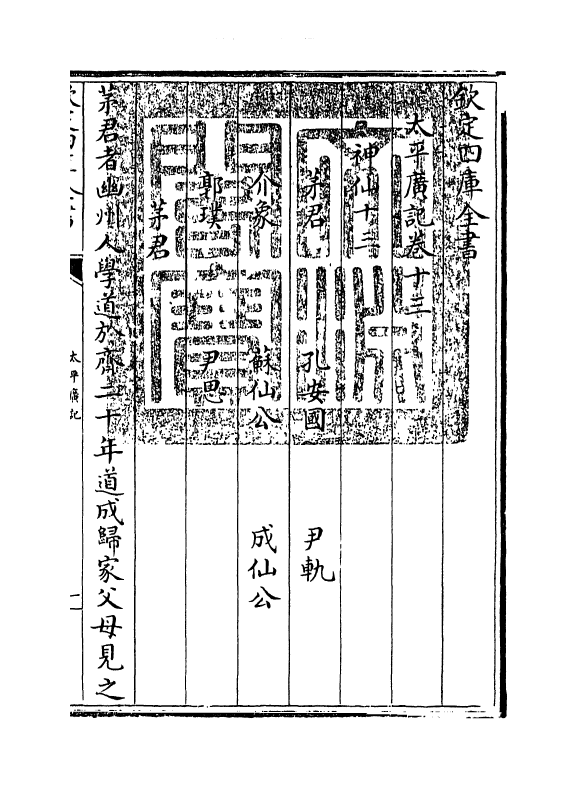 欽定四庫全書
太平廣記卷十三
神仙十三
茅君 孔安國 尹軌
介象 蘇仙公 成仙公
郭璞 尹思
茅君
茅君者幽州人學道於齊二十年道成歸家父母見之
太平廣記